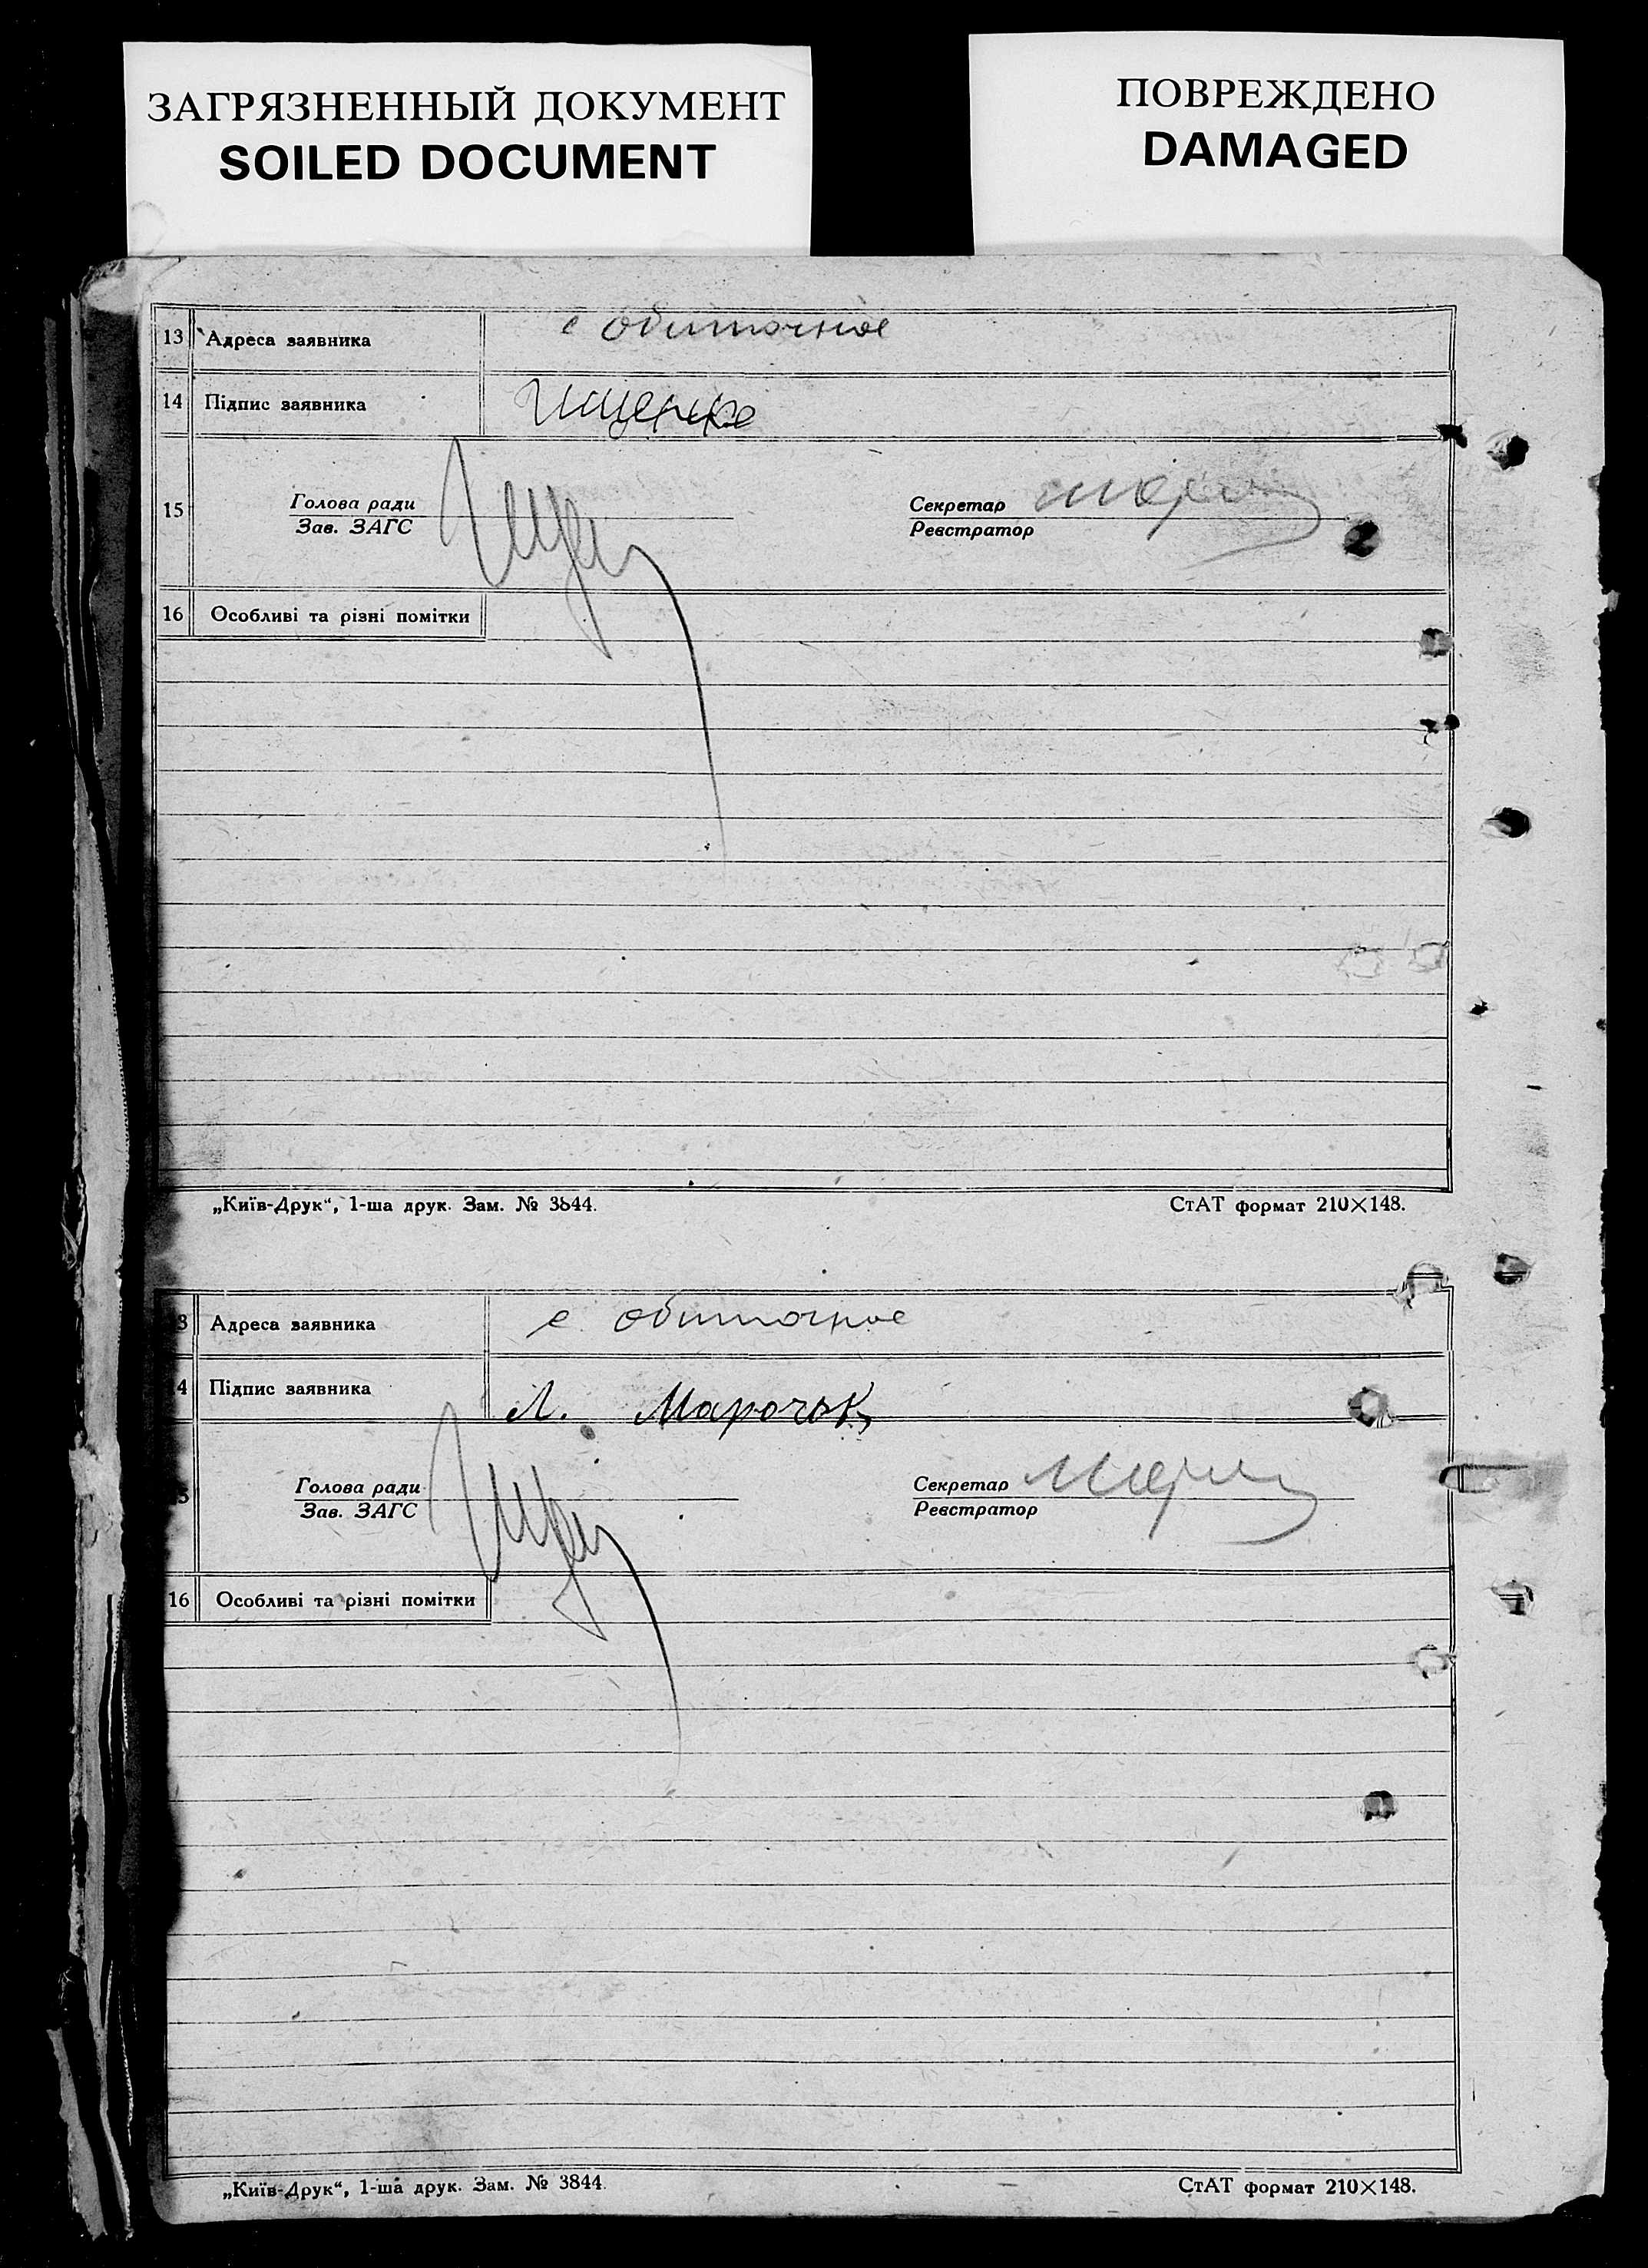 ЗАГРЯЗНЕННЫЙ ДОКУМЕНТ
SOILED DOCUMENT
ПОВРЕЖДЕНО
DAMAGED
13 Адреса заявника с Обиточное
14 Підпис заявника Ищенко
15 Голова ради Секретар
Зав. ЗАГС Реєстратор
16 Особливі та різні помітки
„Київ-Друк“, 1-ша друк. Зам. № 3844. СтАТ формат 210×148.
3 Адреса заявника с. Обиточное
4 Підпис заявника Л. Марочьк
Голова ради Секретар
Зав. ЗАГС Реєстратор
16 Особливі та різні помітки
„Київ-Друк“, 1-ша друк. Зам. № 3844. СтАТ формат 210×148.